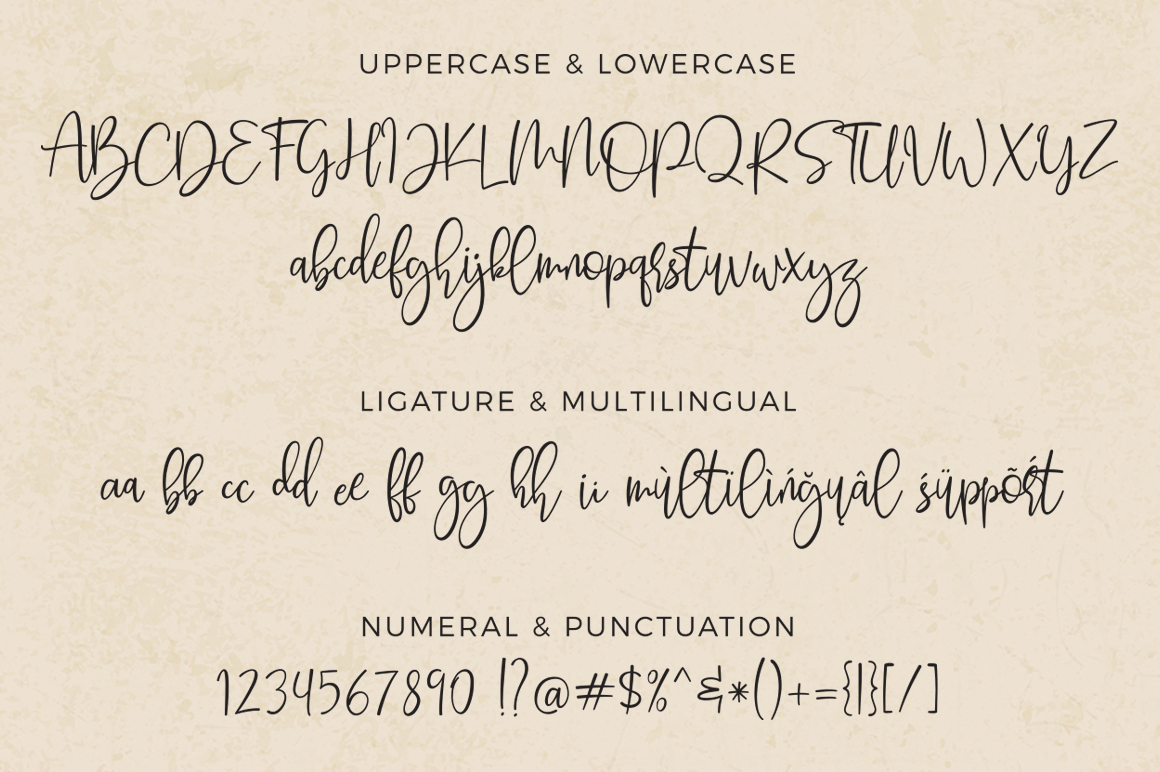 UPPERCASE & LOWERCASE
ABCDEFGHIJKLMNOPQRSTUVWXYZ
abcdefghijklmnopqrstuvwxyz
LIGATURE & MULTILINGUAL
aa bb cc dd ee ff gg hh ii mùltïlìńğųâl śüppõŕt
NUMERAL & PUNCTUATION
1234567890 !?@#$%^&*()+={|}[/]